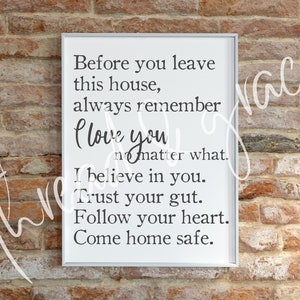 Before you leave
this house,
always remember
I love you
no matter what.
I believe in you.
Trust your gut.
Follow your heart.
Come home safe.
thread & grace